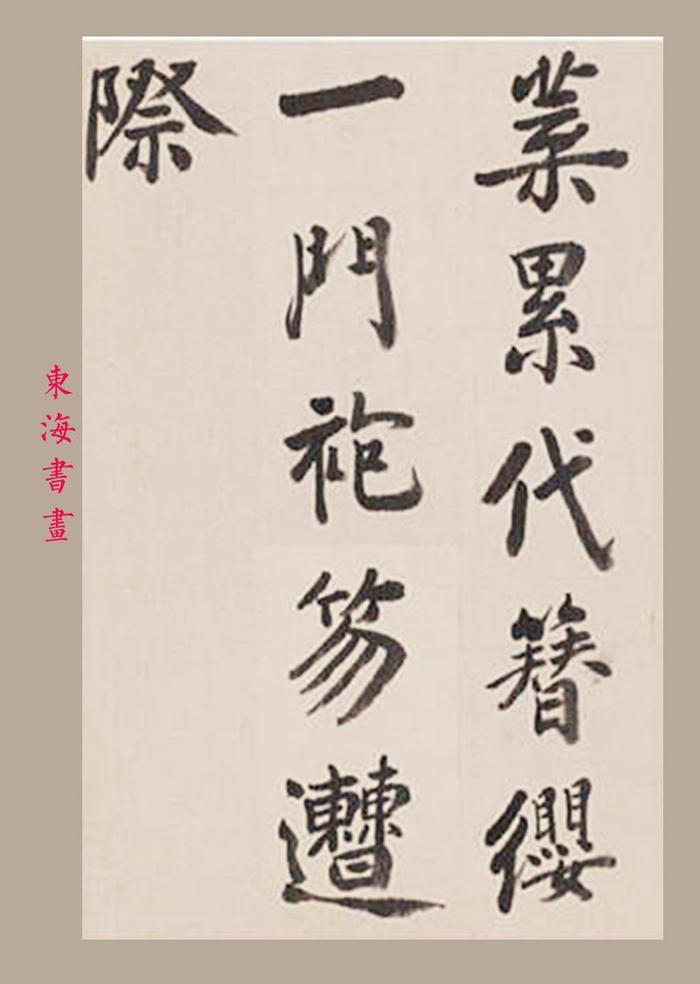 業累代簮纓
一門袍笏遭
際
東海書畫